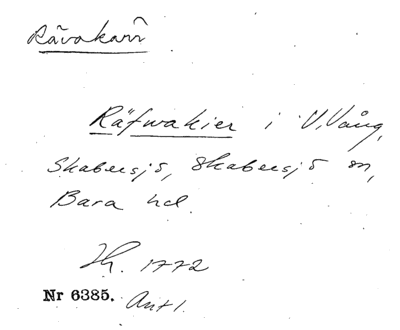 Rävakärr
Räfwakier i V. Vång,
Skabersjö, Skabersjö sn,
Bara hd.
1772
Nr 6385.